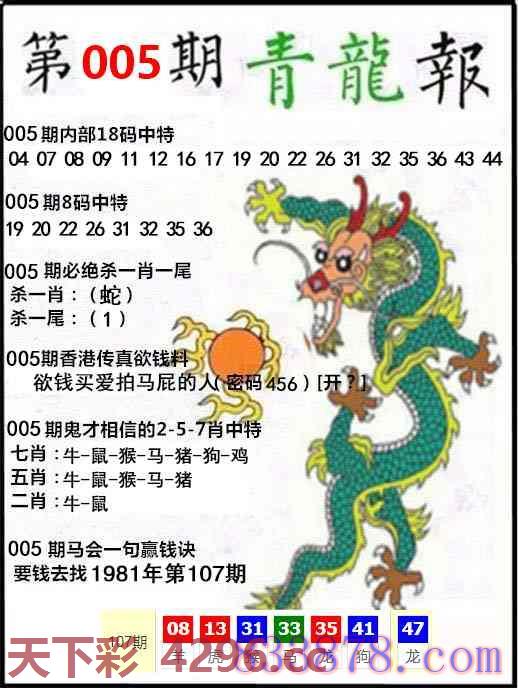 第005期青龍報
005期内部18码中特
04 07 08 09 11 12 16 17 19 20 22 26 31 32 35 36 43 44
005期8码中特
19 20 22 26 31 32 35 36
005期必绝杀一肖一尾
杀一肖：（蛇）
杀一尾：（1）
005期香港传真欲钱料
欲钱买爱拍马屁的人(密码456)[开?]
005期鬼才相信的2-5-7肖中特
七肖：牛-鼠-猴-马-猪-狗-鸡
五肖：牛-鼠-猴-马-猪
二肖：牛-鼠
005期马会一句赢钱诀
要钱去找1981年第107期
107期 08 13 31 33 35 41 47
羊 虎 猴 马 龙 狗 龙
天下彩 4296.cc